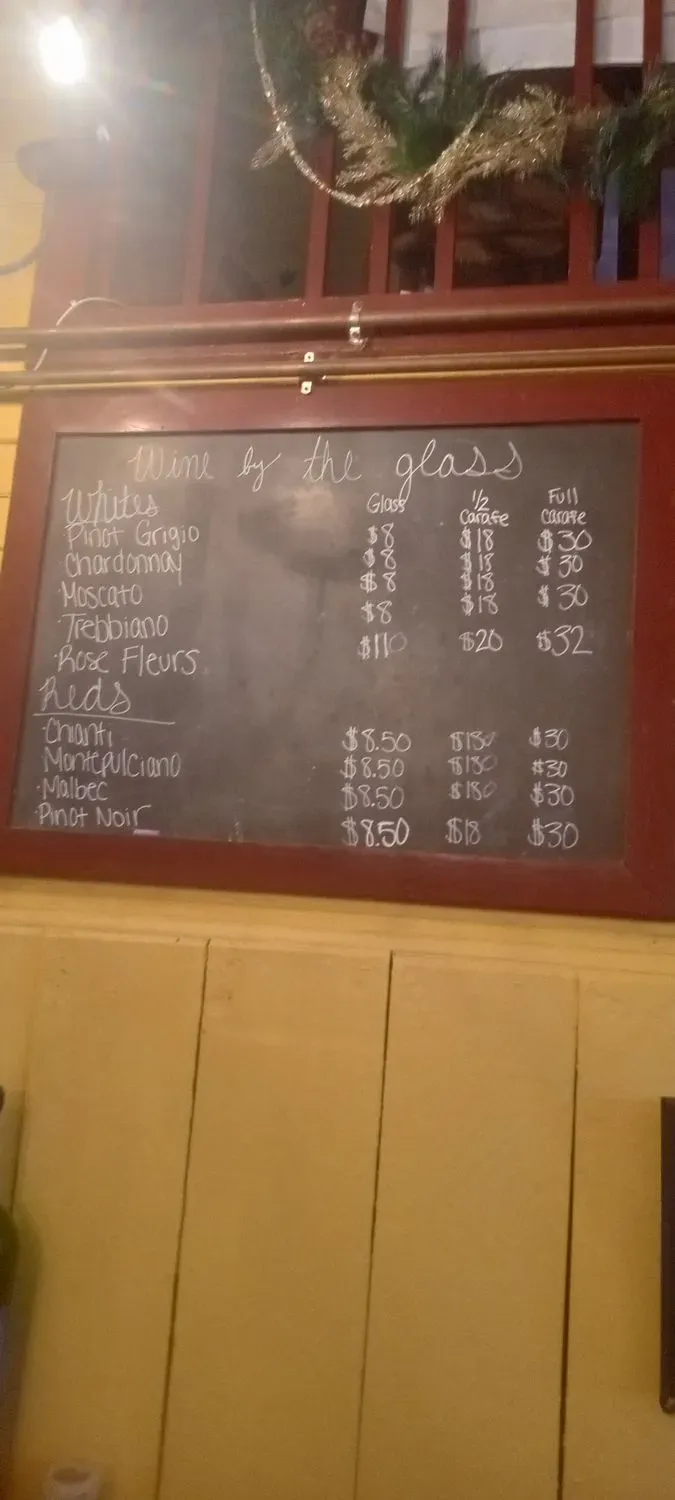 Wine by the glass
Whites Glass 1/2 Carafe Full Carafe
·Pinot Grigio $8 $18 $30
·Chardonnay $8 $18 $30
·Moscato $8 $18
·Trebbiano $8 $18 $30
·Rose Fleurs $20 $32
Reds
·Chianti $8.50 $30
·Montepulciano $8.50 $30
·Malbec $8.50 $30
·Pinot Noir $8.50 $18 $30